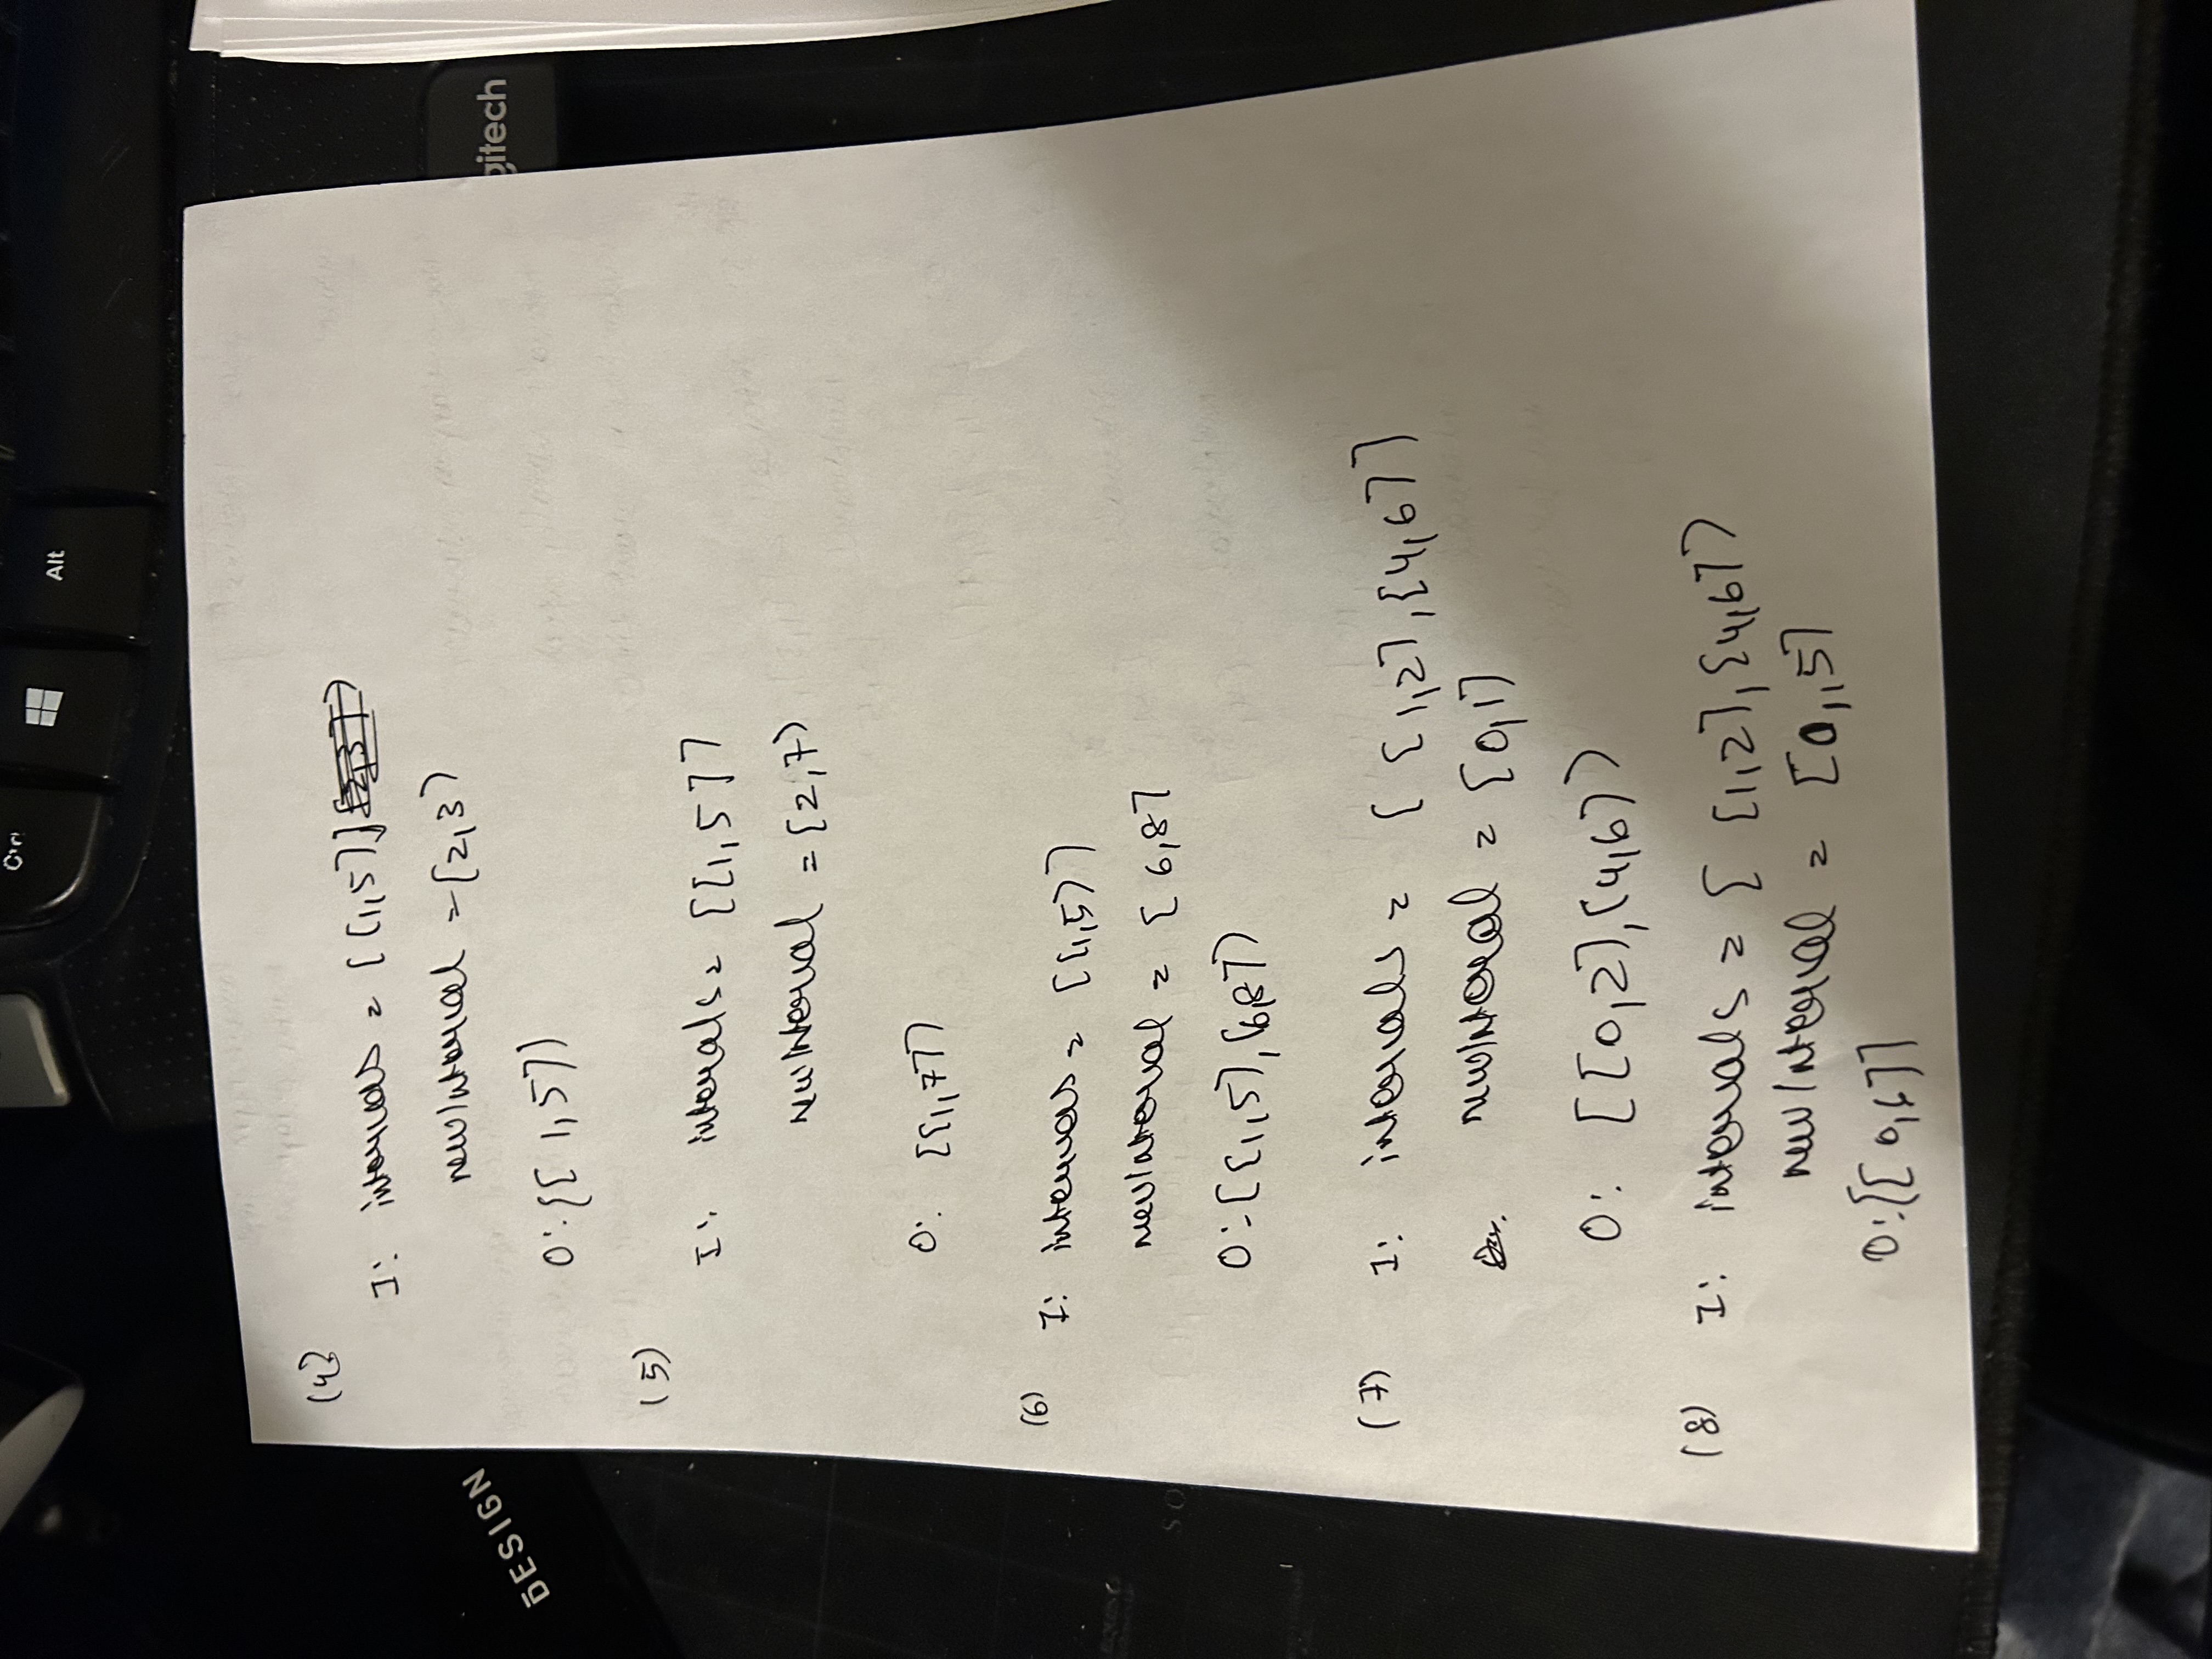 Ctrl
Alt
DESIGN
gitech
(4)
I: intervals = [[1,5]]
newInterval = [2,3]
O: [[1,5]]
(5)
I: intervals = [[1,5]]
newInterval = [2,7]
O: [[1,7]]
(6) I: intervals = [[1,5]]
newInterval = [6,8]
O: [[1,5],[6,8]]
(7) I: intervals = [[1,2],[4,6]]
newInterval = [0,1]
O: [[0,2],[4,6]]
(8) I: intervals = [[1,2],[4,6]]
newInterval = [0,,5]
O: [[0,6]]